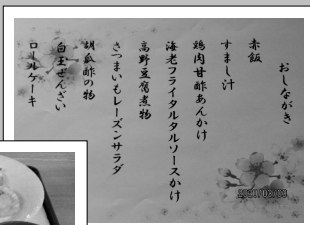 おしながき
赤飯
すまし汁
鶏肉甘酢あんかけ
海老フライタルタルソースかけ
高野豆腐煮物
さつまいもレーズンサラダ
胡瓜酢の物
白玉ぜんざい
ロールケーキ